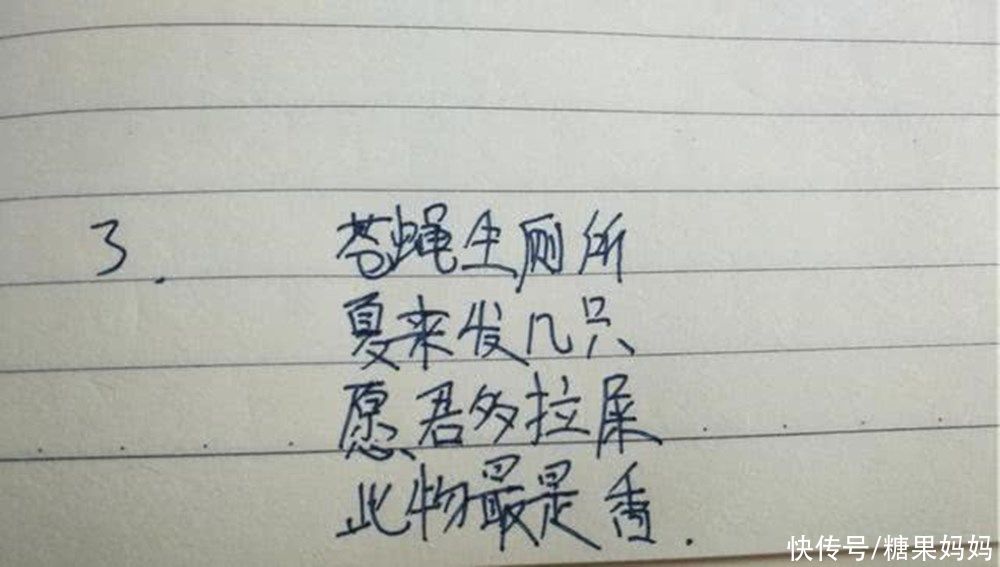 3. 苍蝇生厕所
夏来发几只
愿君多拉屎
此物最是香.
快传号/糖果妈妈